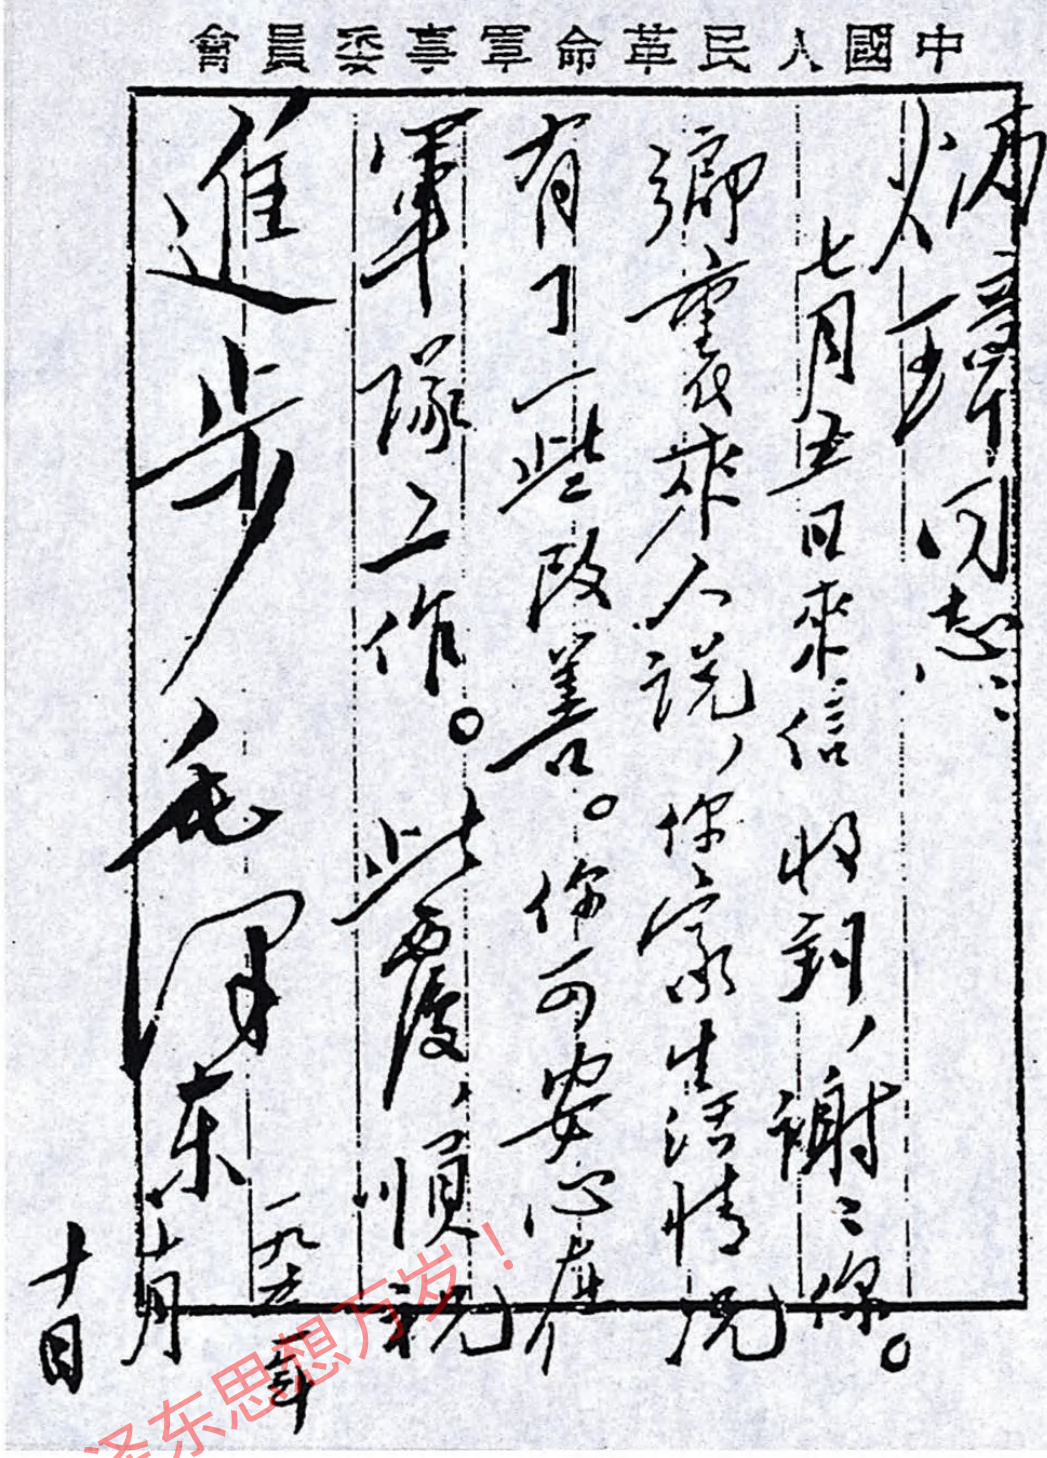 中國人民革命軍事委員會
炳璋同志：
七月五日來信收到，謝〻你。
鄉裏來人说，你家生活情况
有了一些改善。你可安心在
軍隊工作。此覆，順祝
進步 毛澤东
一九五二年
十月
十日
泽东思想万岁！